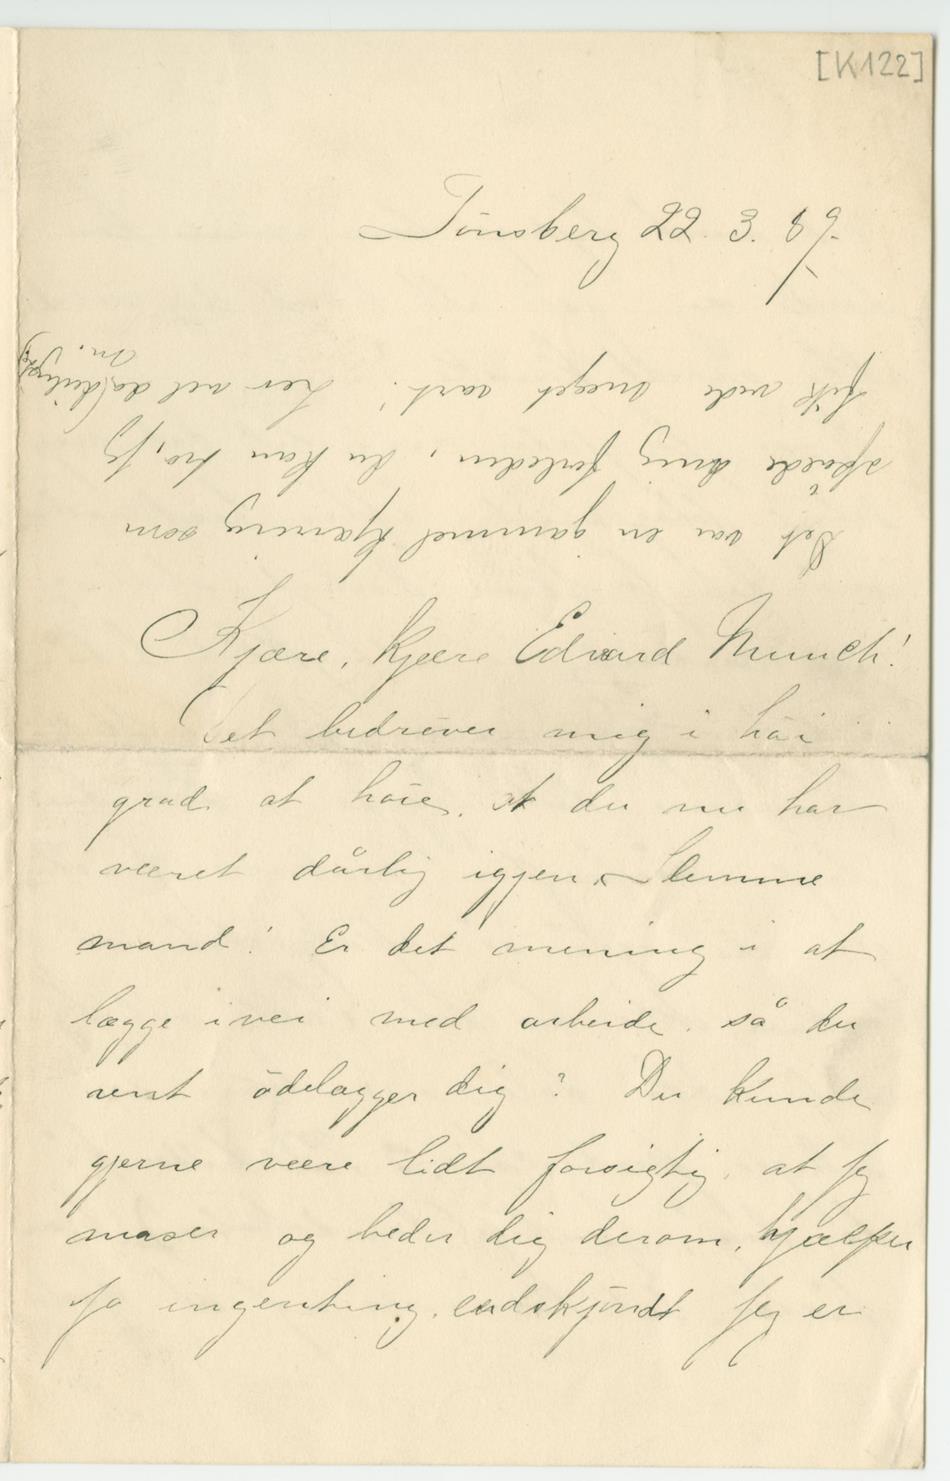 [K122]
Tönsberg 22. 3. 89.
Det var en gammel kjæring som
spåede mig forleden, du kan tro, jeg
fik vide meget rart! Lev vel da
M.
Kjære, kjære Edvard Munch!
Det bedröver mig i höi
grad at höre, at du nu har
været dårlig igjen. Slemme
mand! Er det mening i at
lægge ivei med arbeide, så du
rent ödelægger dig? Du kunde
gjerne være lidt forsigtig, at jeg
maser og beder dig derom, hjælper
jo ingenting, endskjöndt jeg er